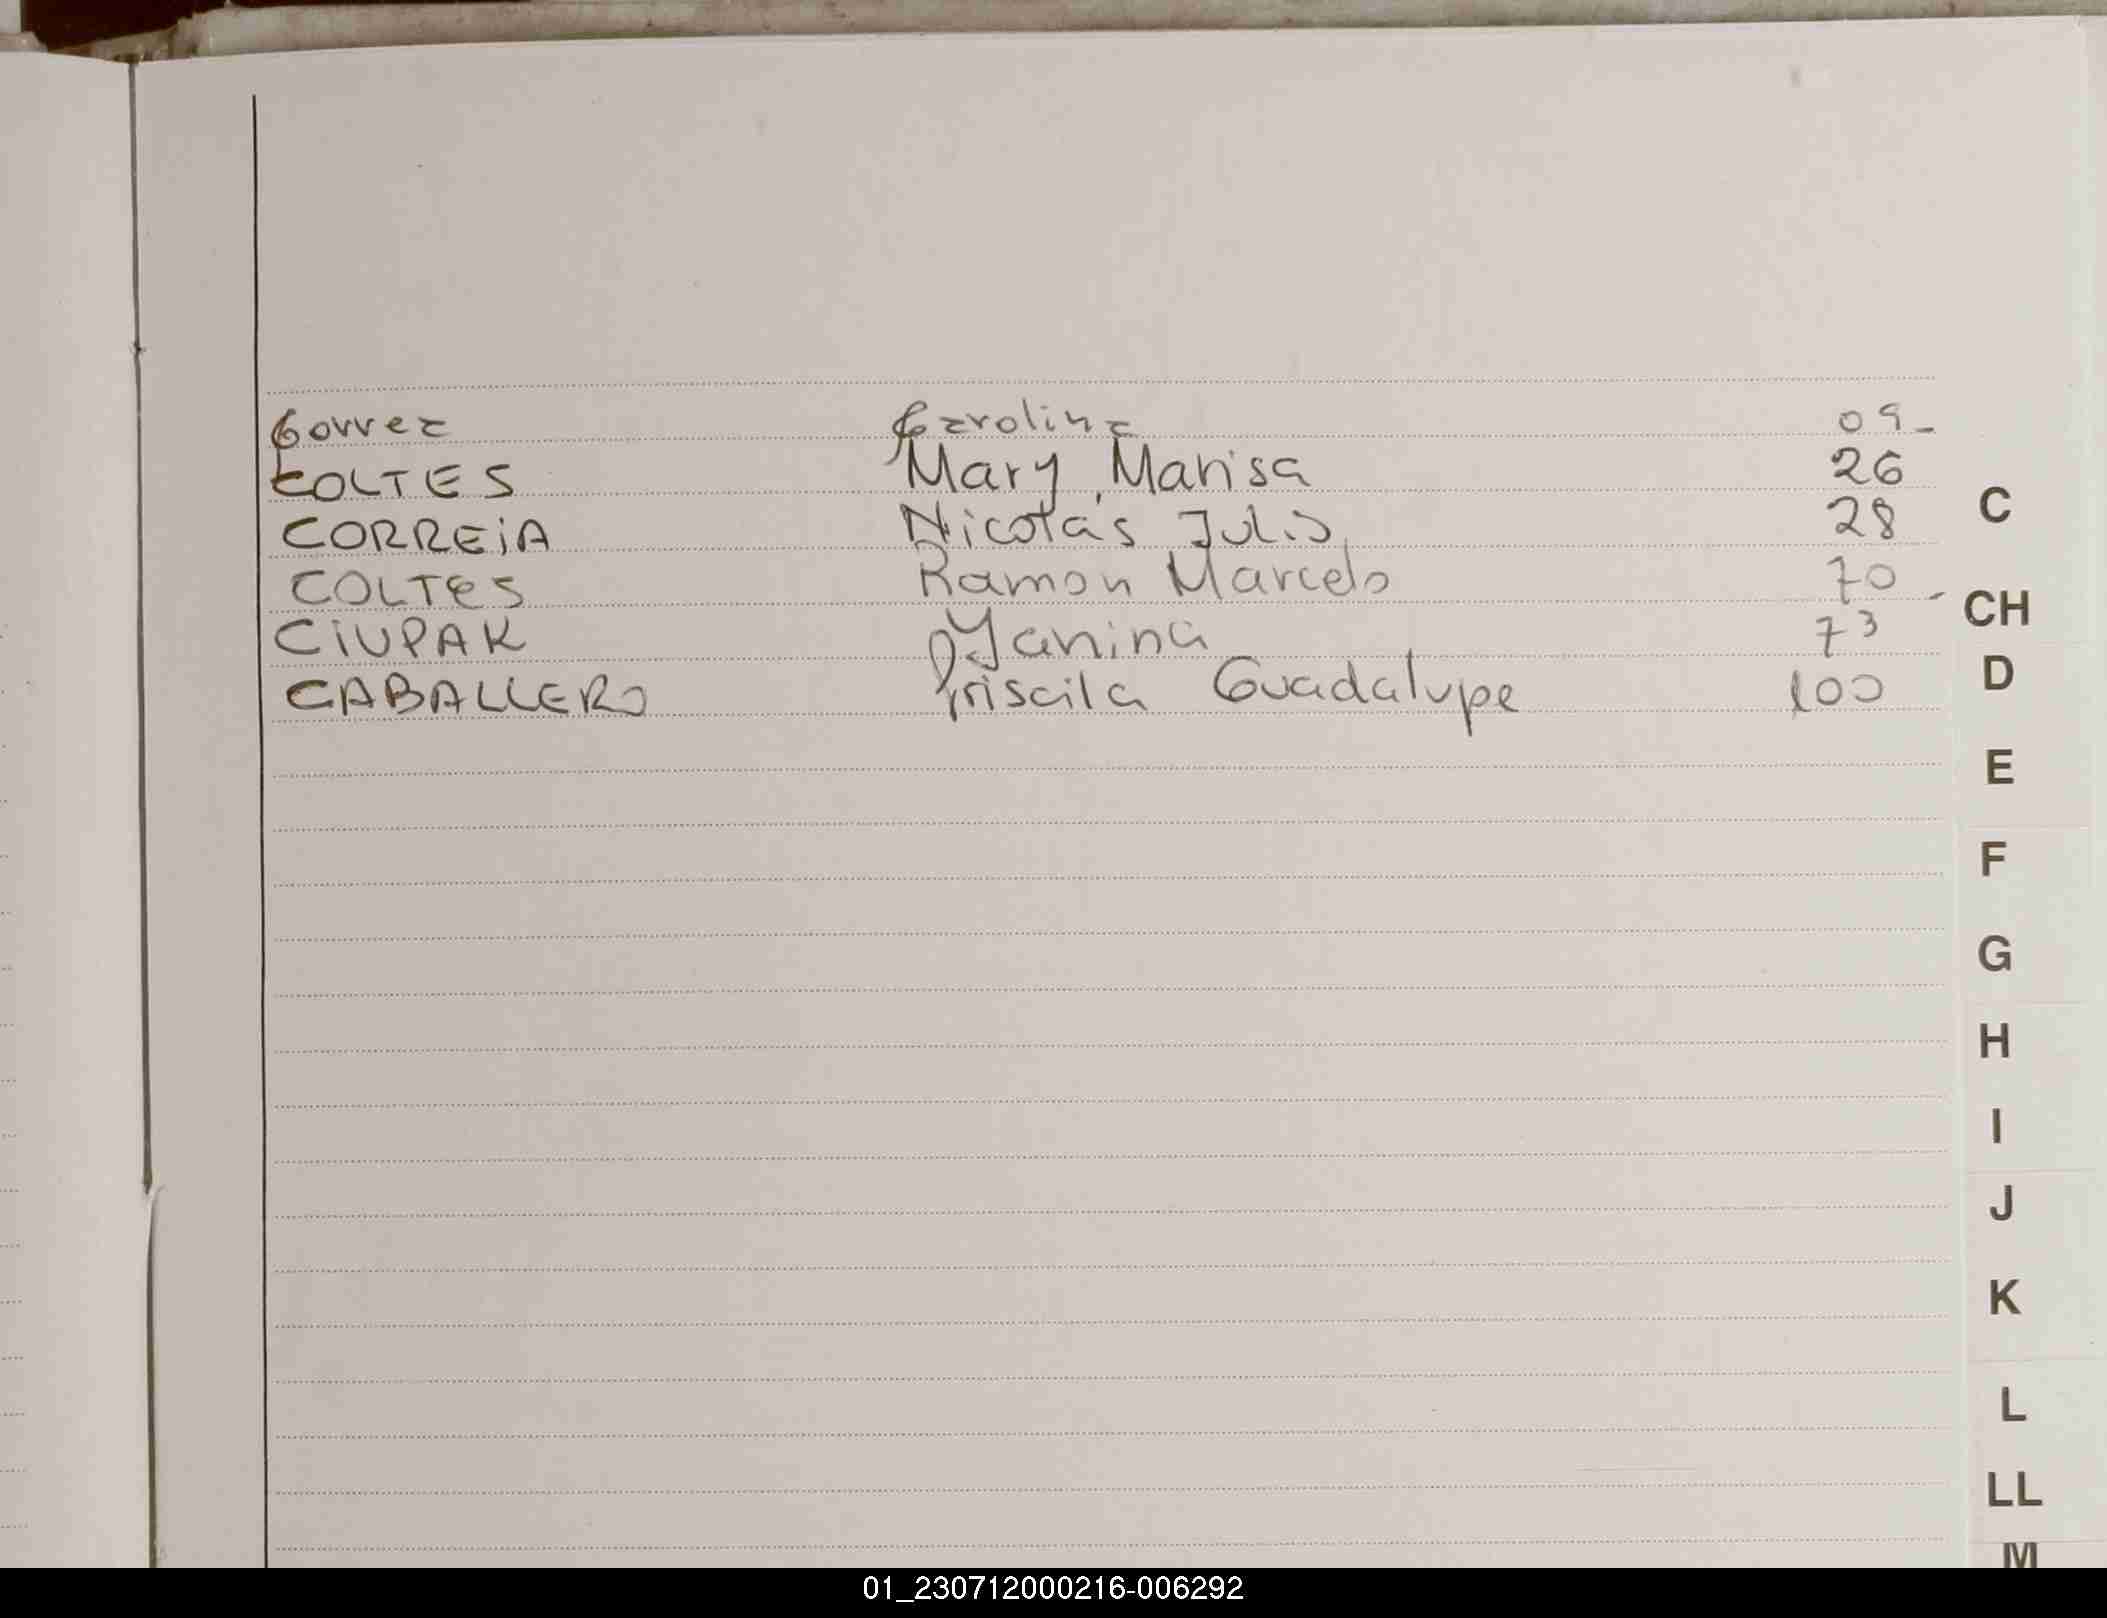 Correa Carolina 09-
COLTES Mary Marisa 26
CORREiA Nicolás Julio 28
COLTES Ramon Marcelo 70
CiUPAK Yanina 73
CABALLERO Priscila Guadalupe 100
C
CH
D
E
F
G
H
I
J
K
L
LL
M
01_230712000216-006292